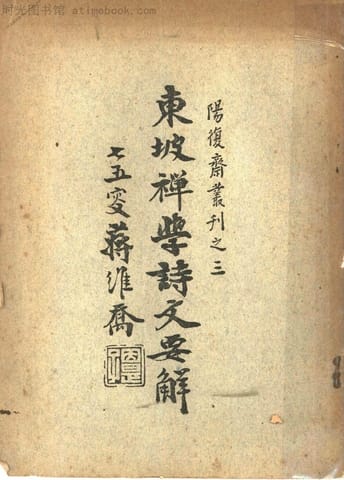 时光图书馆 atimebook.com
陽復齋叢刊之三
東坡禅學詩文要解
七五叟蔣維喬